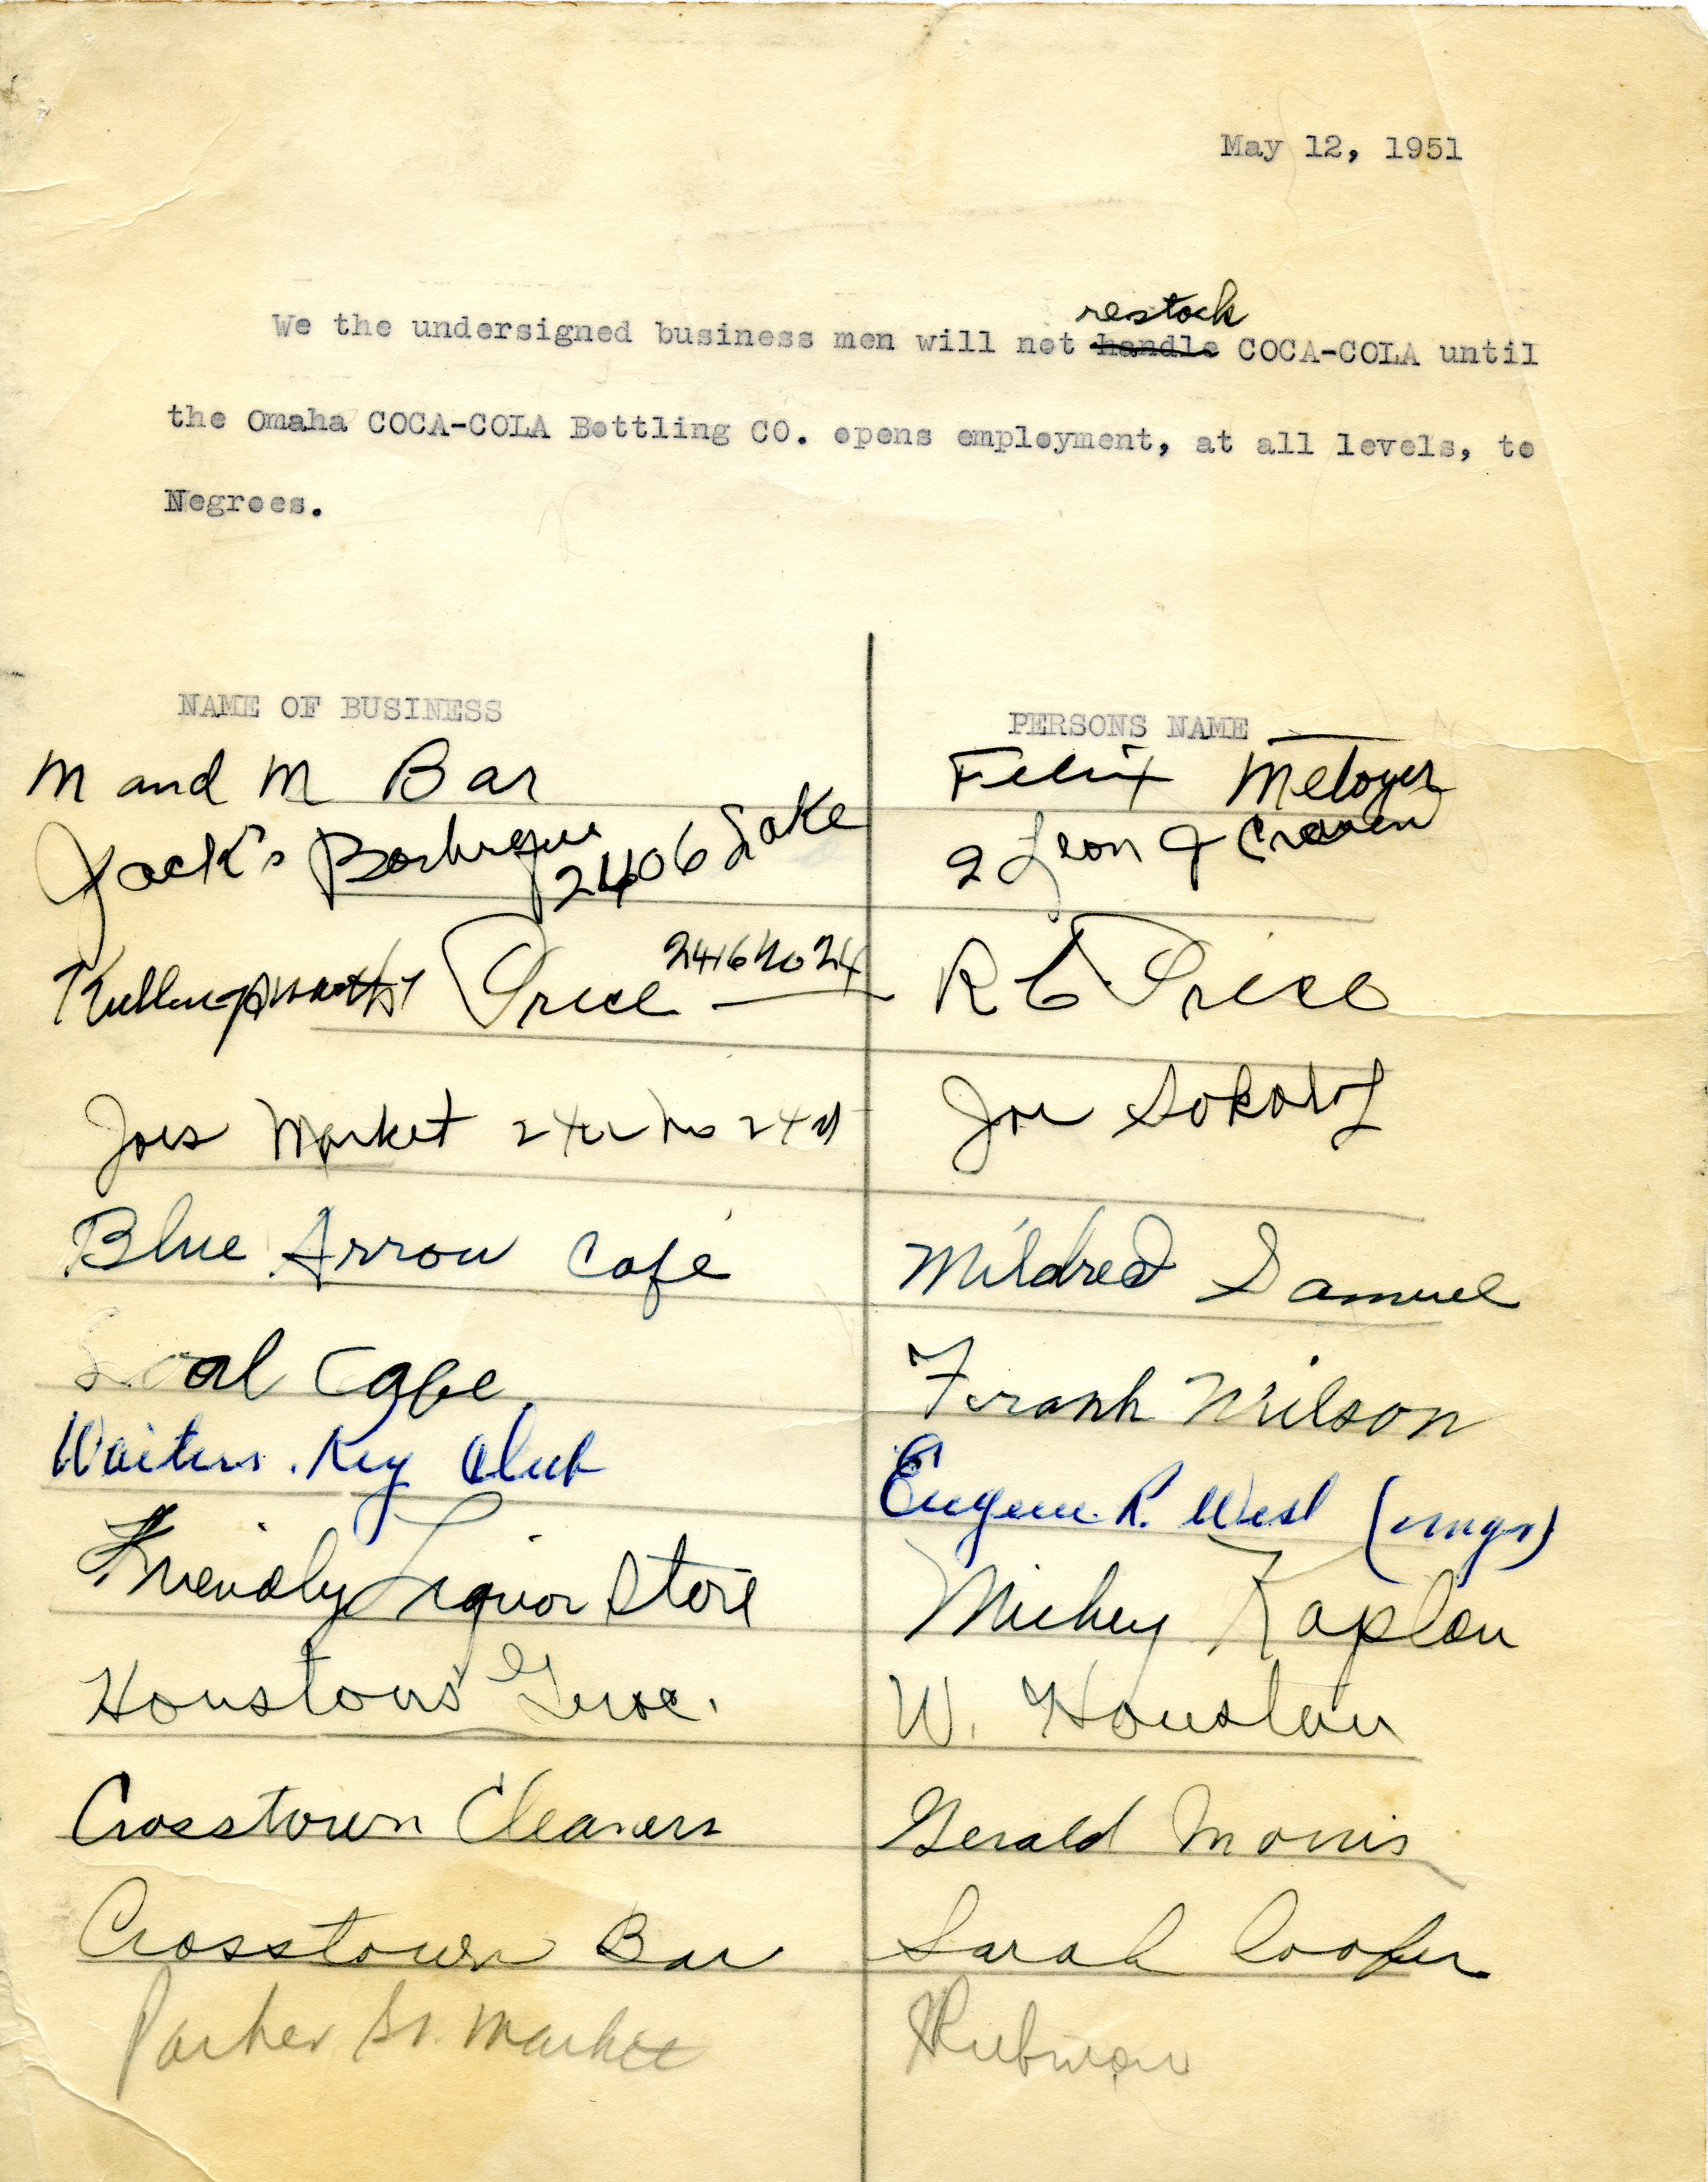 May 12, 1951
restock
We the undersigned business men will not handle COCA-COLA until
the Omaha COCA-COLA Bottling CO. opens employment, at all levels, to
Negroes.
NAME OF BUSINESS PERSONS NAME
M and M Bar Felix Metoyer
Jack's Barbeque 2406 Lake Leon J Craven
Price 2416 No 24 R C Price
Joes Market No 24 Joe Sokolof
Blue Arrow Café Mildred Samuel
Cafe Frank Wilson
Waiters Key Club Eugene R. West (mgr)
Friendly Liquor Store Mickey Kaplan
Houstons Groc. W. Houston
Crosstown Cleaners Gerald Morris
Crosstown Bar Sarah Cooper
Parker St. Market